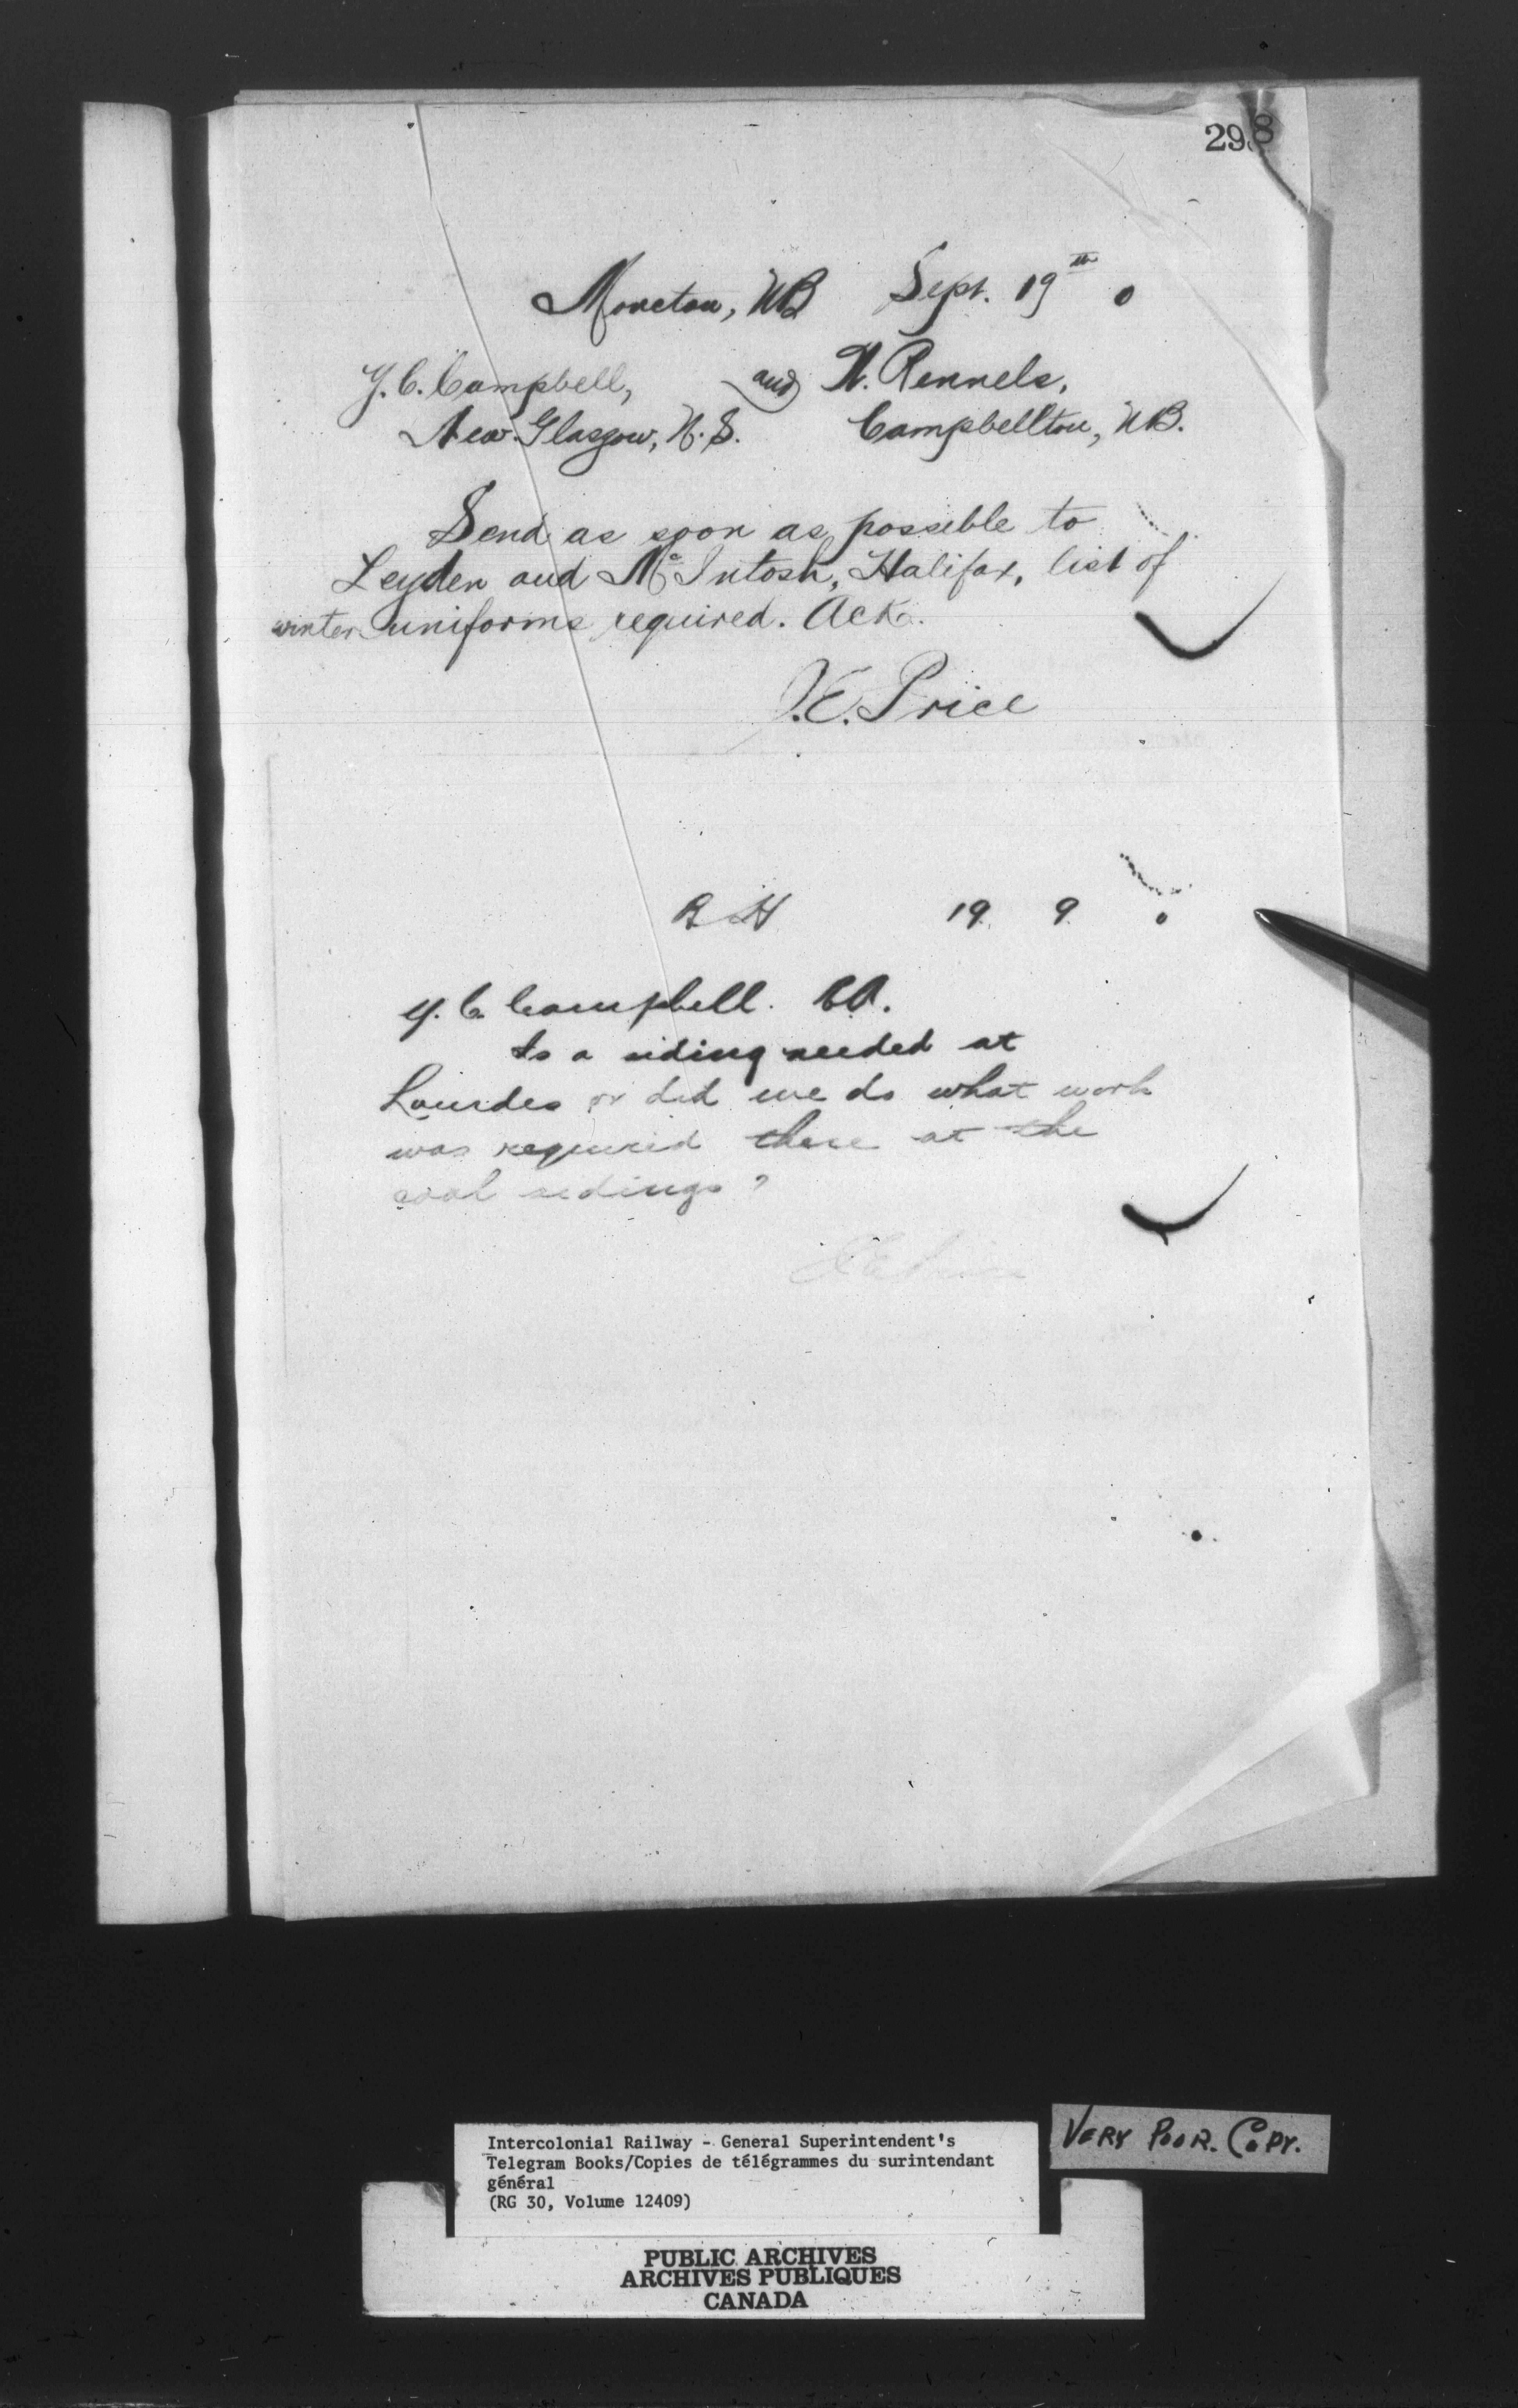 298
Moncton, NB Sept. 19th 0
Y. C. Campbell, and W. Rennels,
New Glasgow, N.S. Campbellton, NB.
Send as soon as possible to
Leyden and McIntosh, Halifax, list of
winter uniforms required. Ack.
J.E. Price
19 9 0
Y. C. Campbell.
Is a siding needed at
Lourdes or did we do what work
was required there at the
coal sidings?
JE Price
Intercolonial Railway - General Superintendent's
Telegram Books/Copies de télégrammes du surintendant
général
(RG 30, Volume 12409)
VERY POOR. COPY.
PUBLIC ARCHIVES
ARCHIVES PUBLIQUES
CANADA